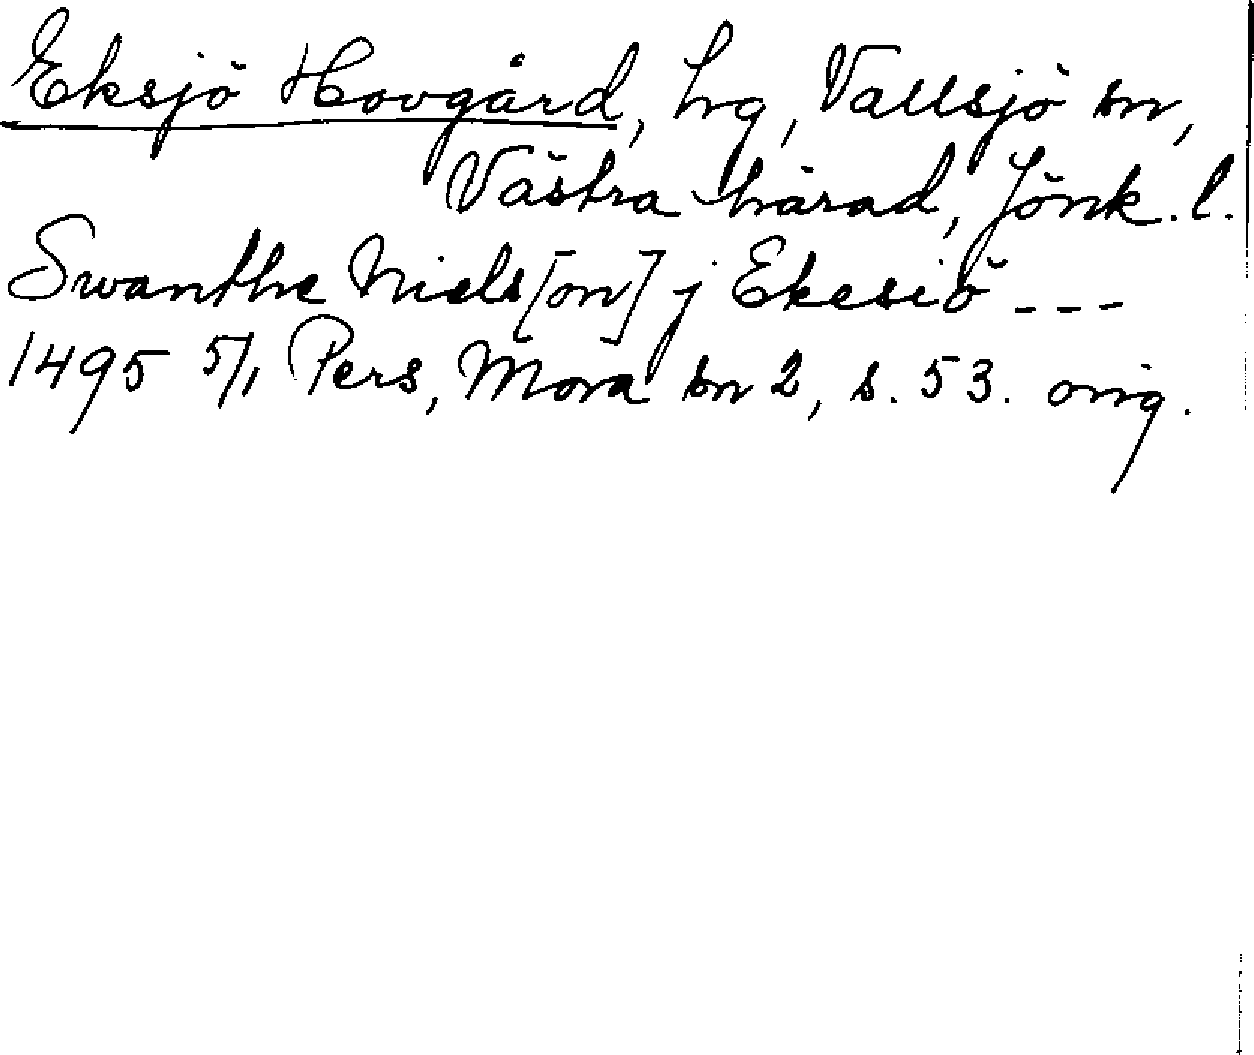 Eksjö Hovgård, hrg, Vallsjö sn,
Västra härad, Jönk. l.
Swanthe Niels[on] j Ekesiö ---
1495 5/1 Pers, Mora sn 2, s. 53. orig.